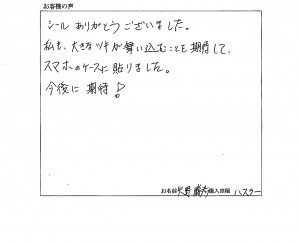 お客様の声
シール ありがとうございました。
私も、大きなツキが舞い込むことを期待して、
スマホのケースに貼りました。
今後に 期待!
お名前 矢野 購入車種 ハスラー